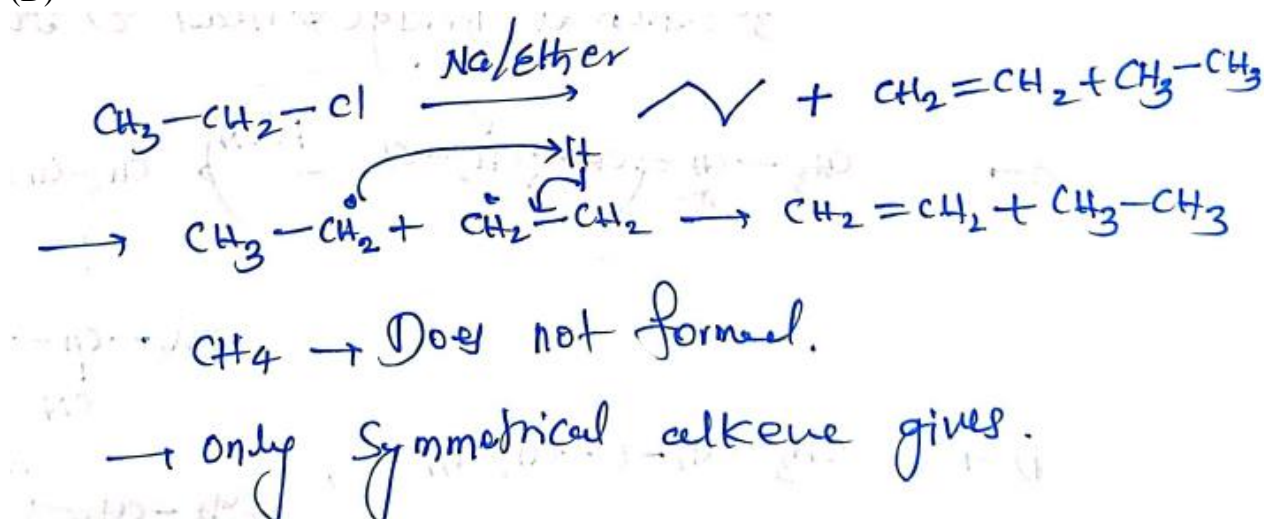 CH₃–CH₂–Cl Na/Ether → + CH₂=CH₂ + CH₃–CH₃
→ CH₃–ĊH₂ + ĊH₂–CH₂ H → CH₂=CH₂ + CH₃–CH₃
CH₄ → Does not formed.
→ only Symmetrical alkene gives.